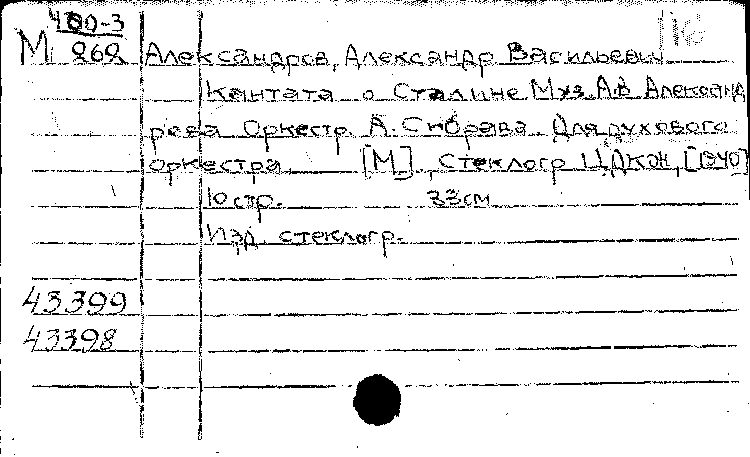 480-3
М 262 Александров, Александр Васильевич
Кантата о Сталине Муз. А.В. Александ
рова Оркестр А. Сибрава. Для духового
оркестра. [М]., Стеклогр ЦДКЖ, [1940]
10 стр. 33 см
Изд. стеклогр.
43399
43398